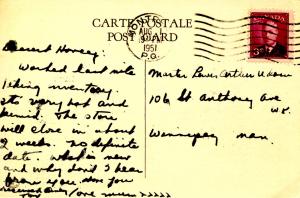 CARTE POSTALE
POST CARD
MONT
AUG
1951
P.O.
CANADA
Dearest Honey
Worked last nite
taking inventory.
Its very hot and
humid. The store
will close in about
2 weeks. No definite
date. What is new
and why don't I hear
from you. Love you
received
Master
106 St Anthony Ave
Winnipeg Man.